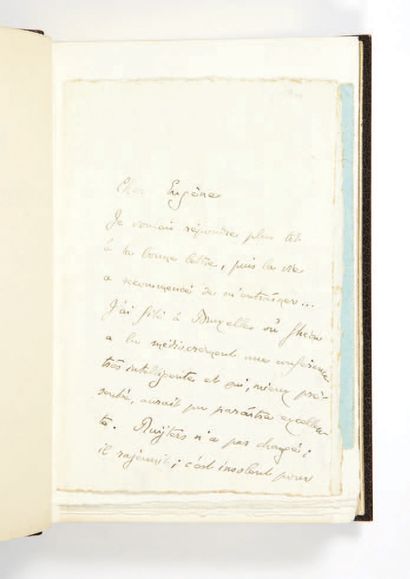 Cher Eugène
Je voulais répondre plus tôt
à ta bonne lettre, puis la vie
a recommencé de m'entraîner...
J'ai filé à Bruxelles où Ghéon
a lu médiocrement une conférence
très intelligente et qui, mieux pré-
sentée, aurait pu paraître excellen-
te. Ruyters n'a pas changé;
il rajeunit; c'est insolent pour